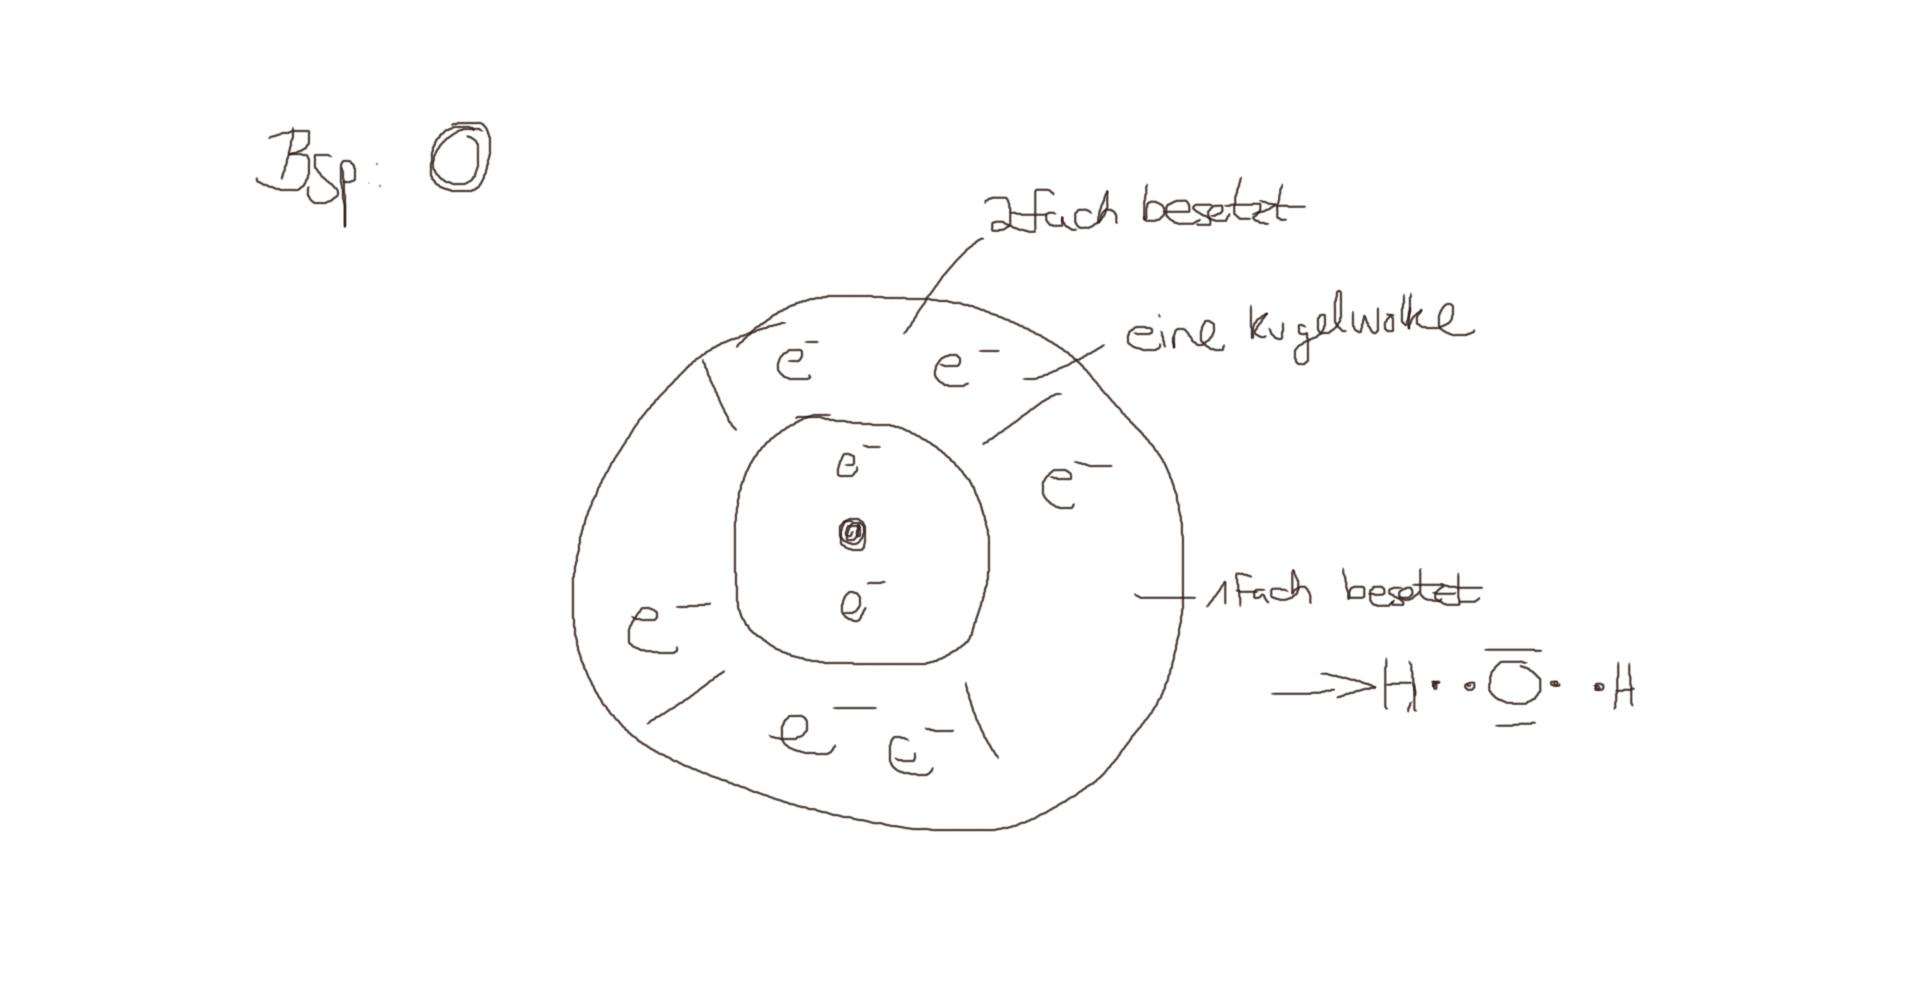 Bsp: O
2fach besetzt
eine Kugelwolke
e⁻ e⁻
e⁻
e⁻
e⁻
e⁻
1fach besetzt
e⁻ e⁻
→ H· ·O· ·H